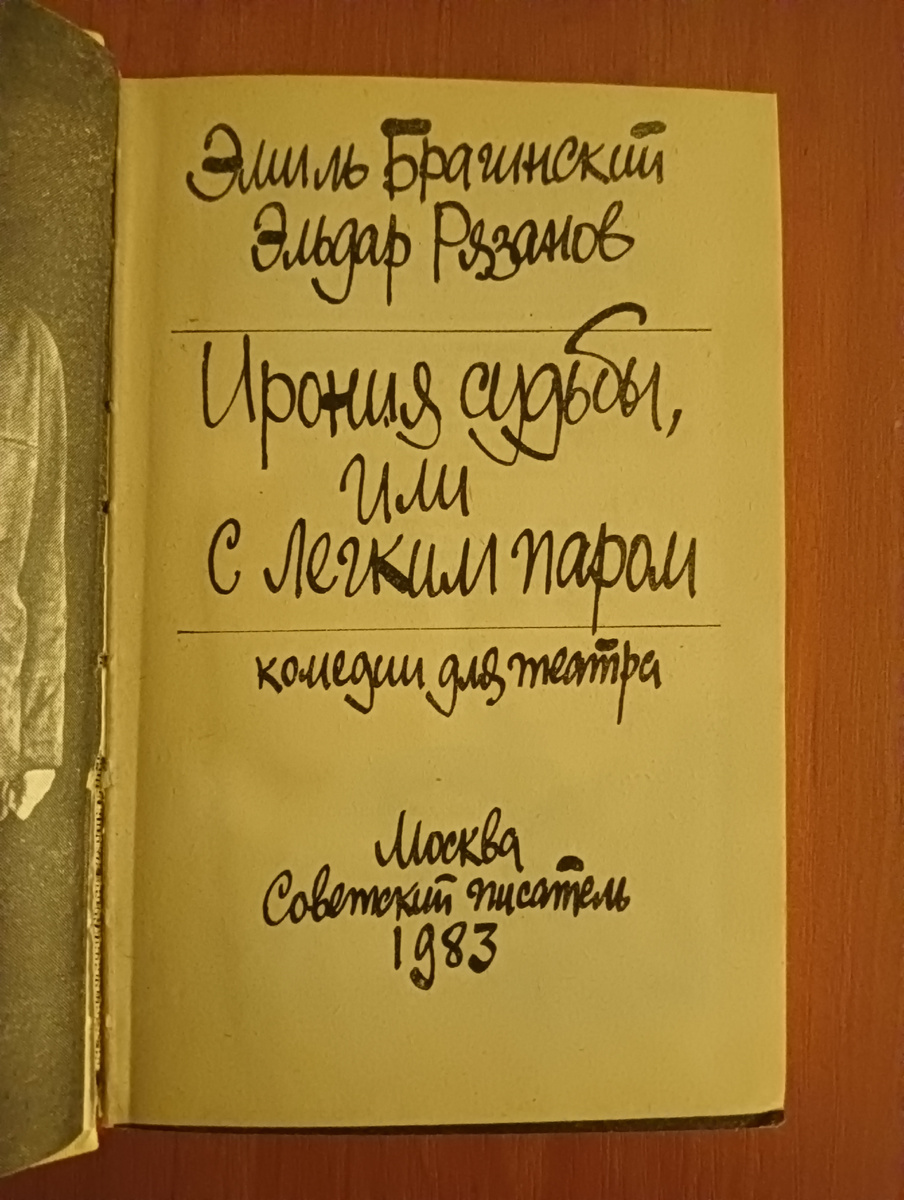 Эмиль Брагинский
Эльдар Рязанов
Ирония судьбы,
или
С легким паром
комедии для театра
Москва
Советский писатель
1983